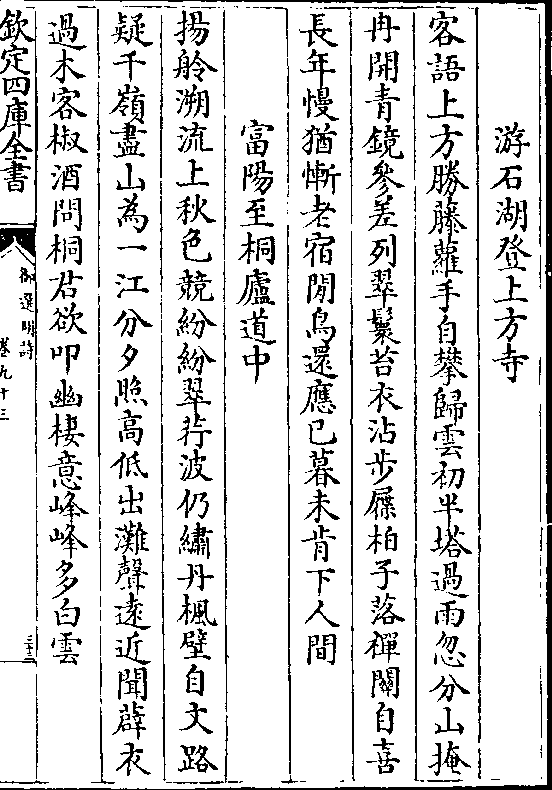 游石湖登上方寺
客語上方勝藤蘿手自攀歸雲初半塔過雨忽分山掩
冉開青鏡參差列翠鬟苔衣沾步屧柏子落禪關自喜
長年慢猶慚老宿閒鳥還應已暮未肯下人間
富陽至桐廬道中
揚舲溯流上秋色競紛紛翠荇波仍繡丹楓壁自文路
疑千嶺盡山為一江分夕照高低出灘聲遠近聞薜衣
過木客椒酒問桐君欲叩幽棲意峰峰多白雲
欽定四庫全書
御選明詩
卷九十三
三十二